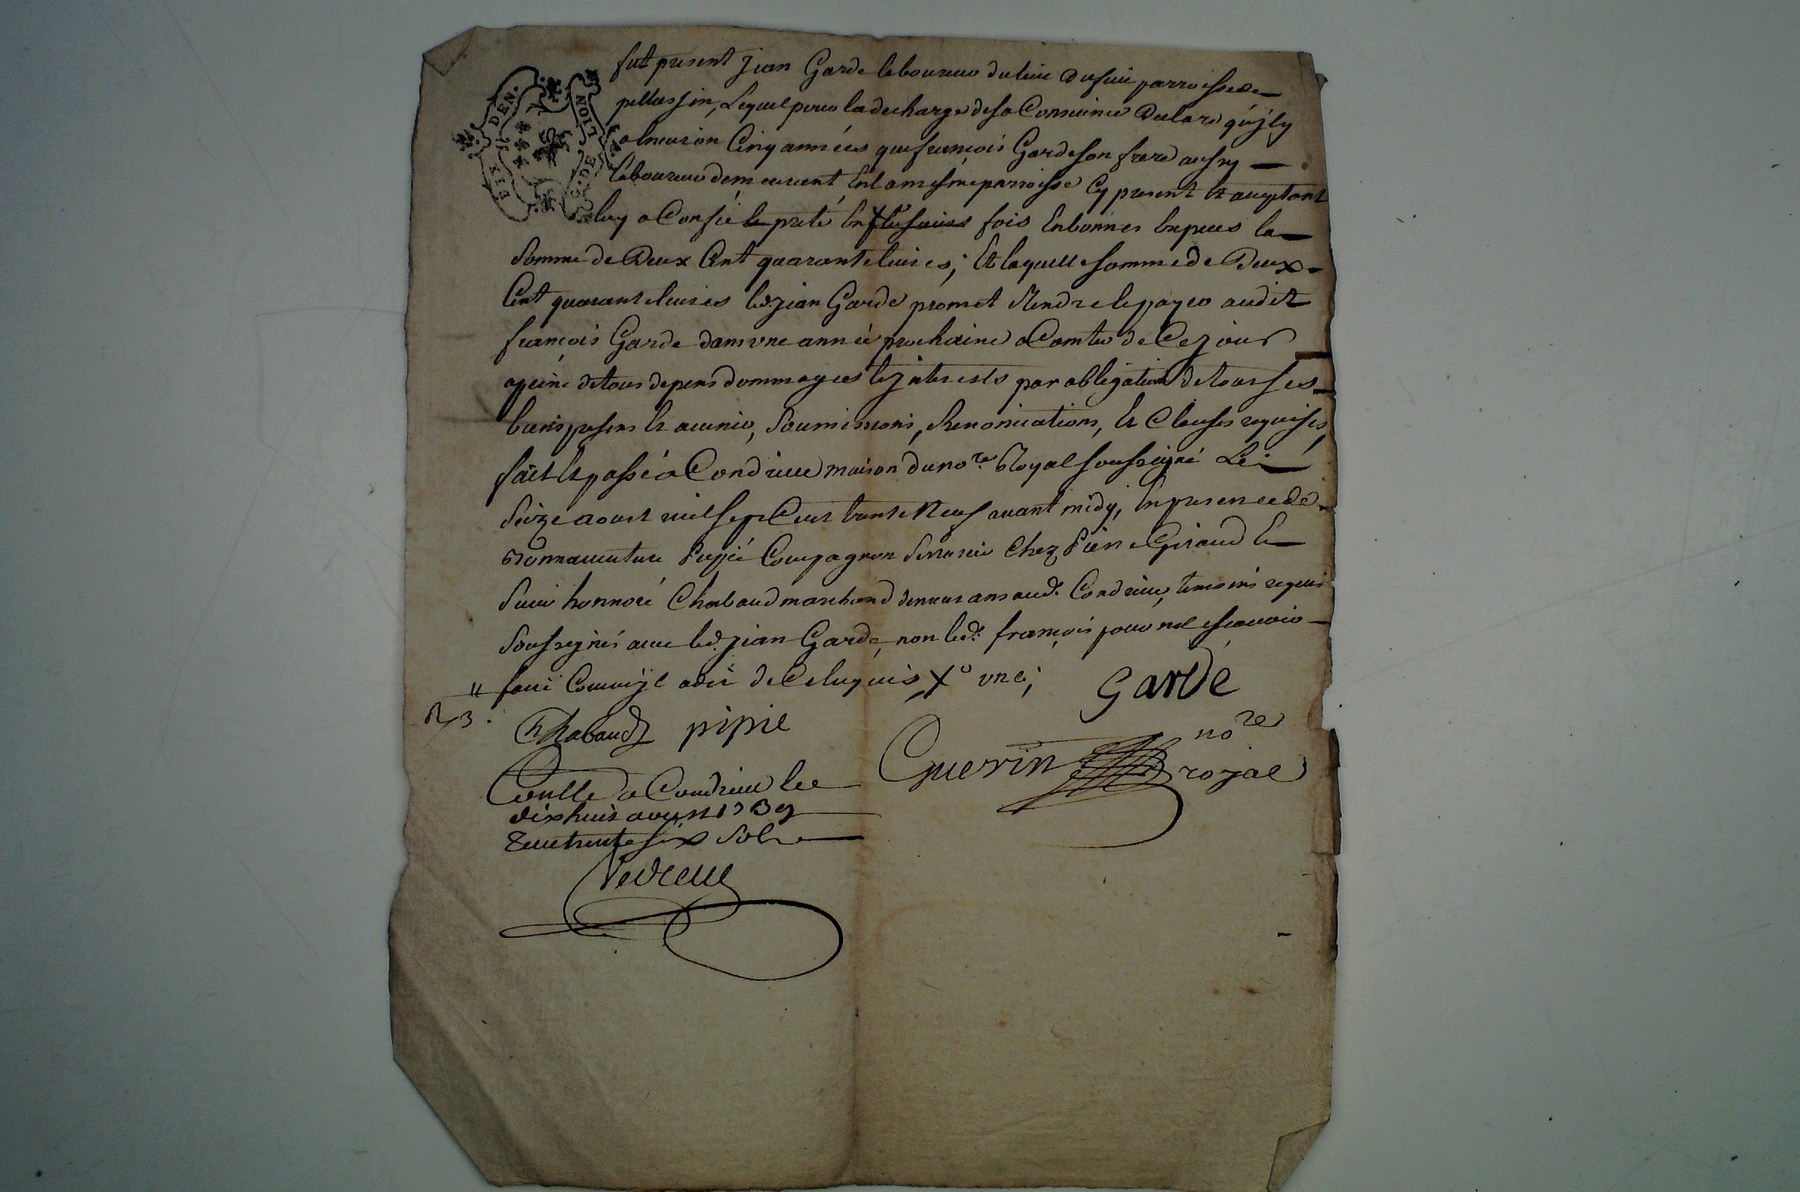 GEN. DE LION
SIX DEN.
fut present jean Garde laboureur du lieu Dusuie parroisse de
pellussin, Lequel pour la decharge de sa Consience Declare qu'jl y
a environ Cinq années que françois Garde son frere aussy
laboureur demeurant En la mesme parroisse Cy present Et acceptant
luy a Confié Et preté En plusieurs fois En bonnes Especes la
Somme de Deux Cent quarante livres; Et laquelle somme de Deux
Cent quarante livres led jean Garde promet Rendre Et payer audit
françois Garde dans une année prochaine a Comter de Ce jour
a peine de tous depens dommages Et jnterests par obligation de tous ses
biens presens Et avenir, Soumissions, Renonciations, Et Clauses requises,
fait Et passé a Condrieu maison du nore Royal soussigné Le
Seize aoust mil sept Cent trente Neuf avant midy, En presence de
Bonnaventure Compagnon Serrurier Chez Pierre Giraud Et
Sieur honnoré Chabaud marchand demeurans aud. Condrieu, temoins requis
Soussignés avec led. jean Garde, non led. françois pour ne le scavoir
faire Comm'jl a dit de Ce Enquis Xo une;
Garde
R 3
Chabaud pipie
Guerin nore royal
Conllé a Condrieu le
dixhuit aoust 1739
Receu trente six Sols